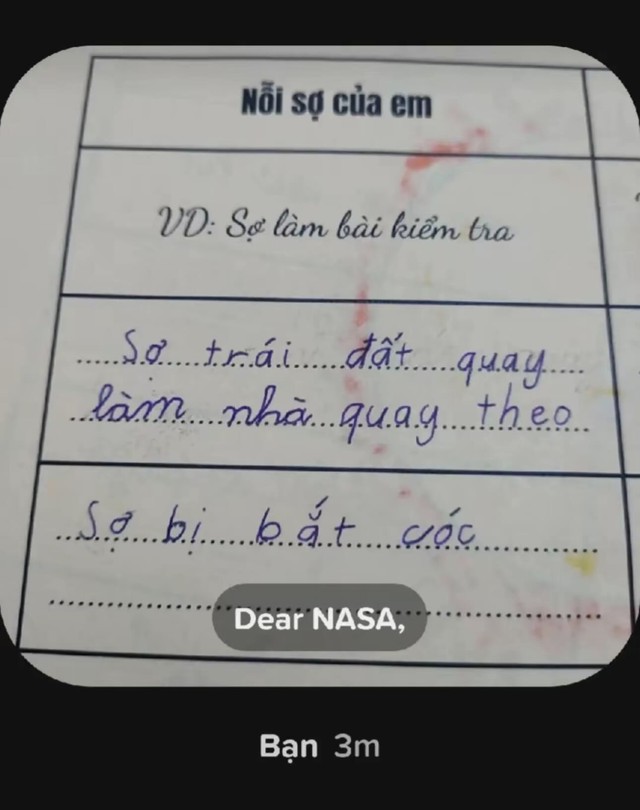 Nỗi sợ của em
VD: Sợ làm bài kiểm tra
Sợ trái đất quay
làm nhà quay theo
Sợ bị bắt cóc
Dear NASA,
Bạn 3m